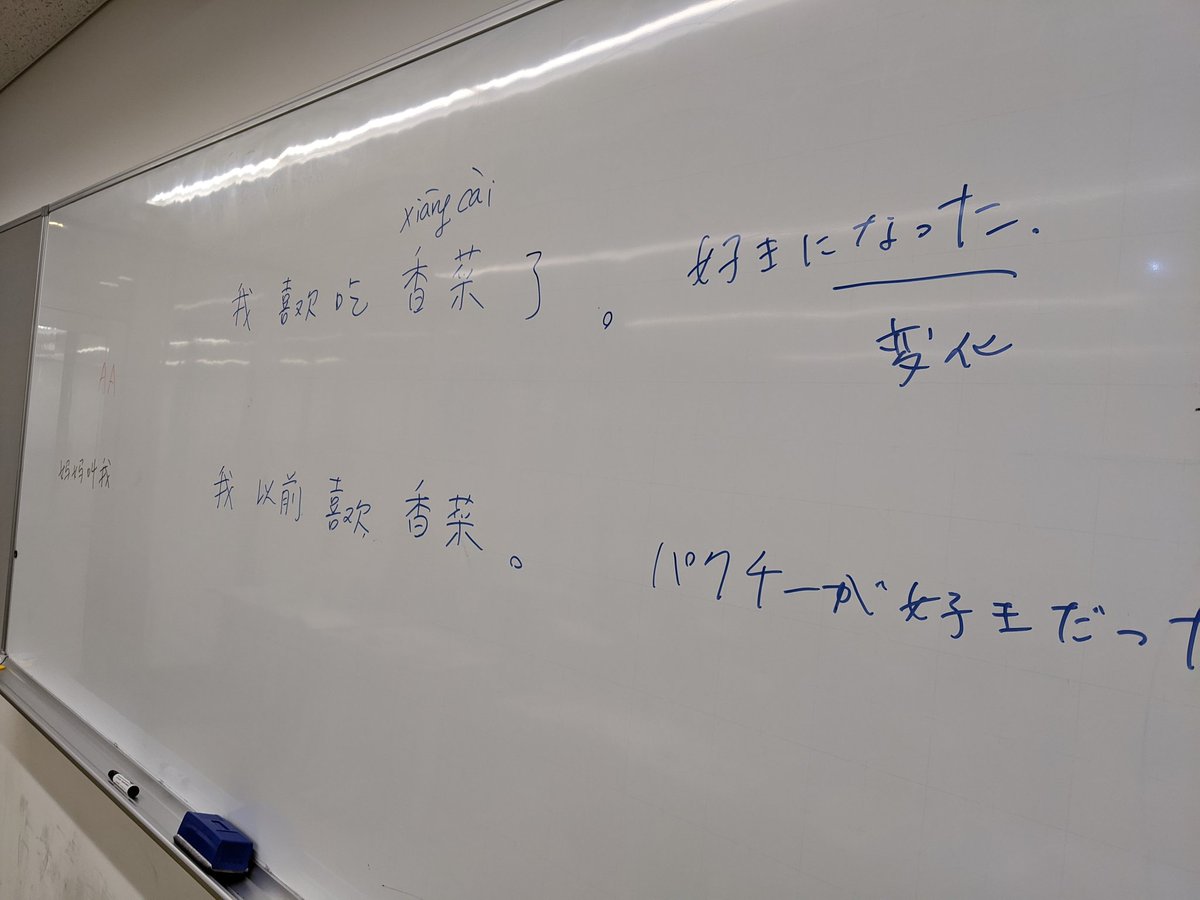 xiāng cài
我喜欢吃香菜了。 好きになった.
変化
AA
妈妈叫我
我以前喜欢香菜。 パクチーが好きだった